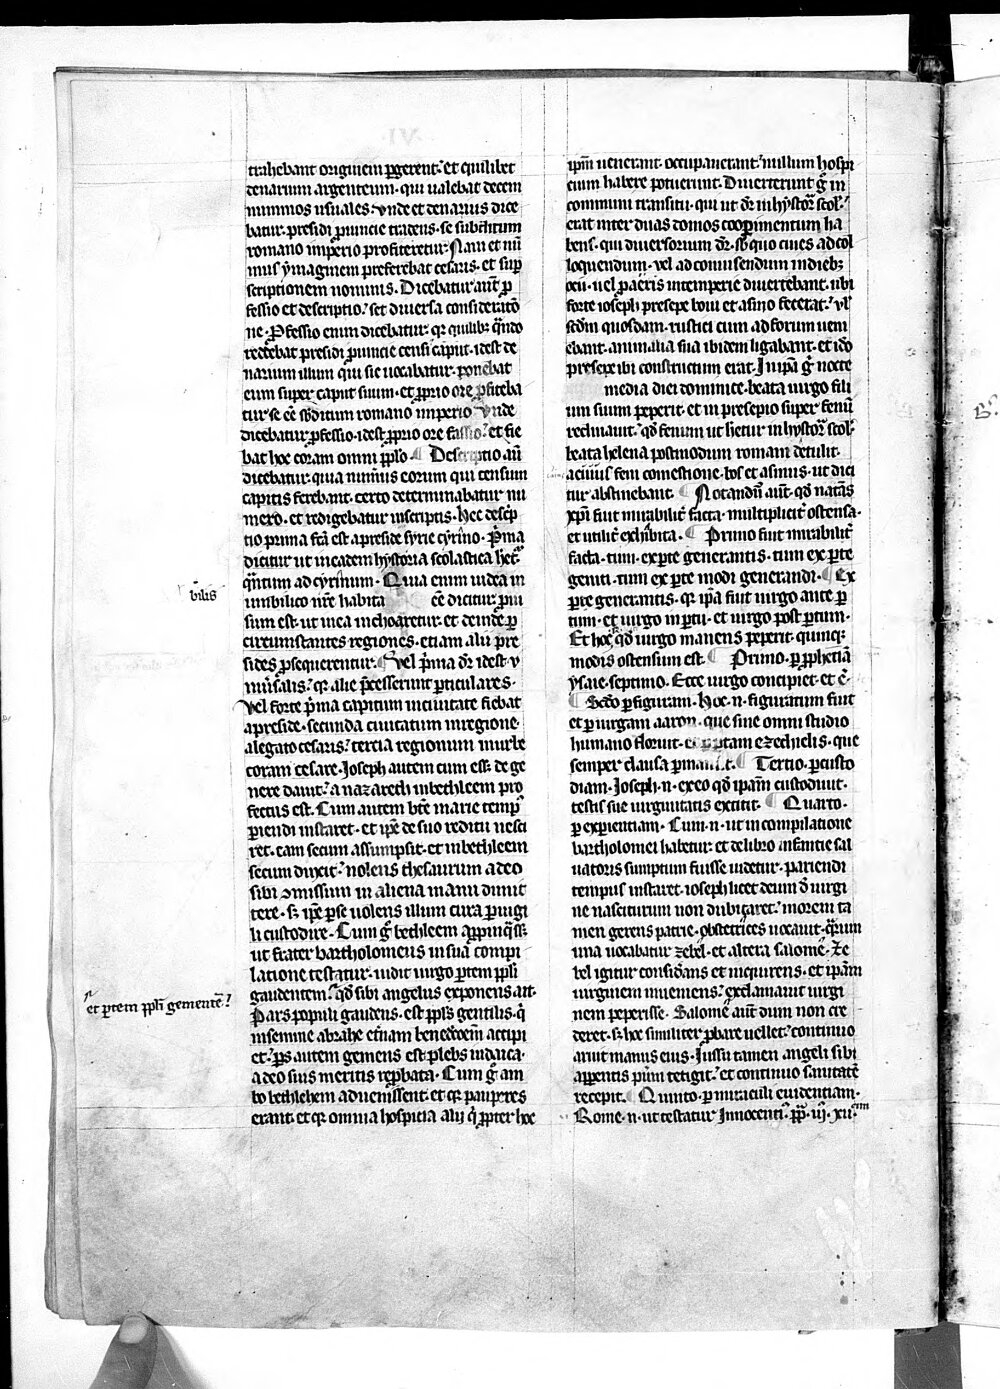 trahebant originem pergerent. et quilibet
denarium argenteum. qui ualebat decem
nummos usuales. Vnde et denarius dice
batur. presidi prouincie tradens. se subditum
romano imperio profiteretur. Nam et nu͞
mus ymaginem preferebat cesaris. et sup͞
scriptionem nominis. Dicebatur aut͞ p͞
fessio et descriptio. set diuersa consideratio͞
ne. Professio enim dicebatur. qr quilibz qn͞do
reddebat presidi prouincie censu͞ capitis. idest de
narium illum qui sic uocabatur. ponebat
eum super caput suum. et proprio ore profiteba
tur se ee͞ subditum romano imperio Vnde
dicebatur professio. idest proprio ore fassio. et fie
bat hoc coram omni pp͞lo. Descriptio au͞
dicebatur. quia numerus eorum qui censum
capitis ferebant. certo determinabatur nu
mero. et redigebatur inscriptis. Hec descrip
tio prima fc͞a est apreside syrie cyrino. P͞ma
dicitur ut ineadem hystoria scolastica het͞.
qn͞tum ad cyrinum. Quia enim iudea in
umbilico nr͞e habita ee͞ dicitur. proui
sum est. ut inea inchoaretur. et deinde p͞
circumstantes regiones. etiam alii pre
sides prosequerentur. Vel p͞ma dr͞ idest v
niu͞salis. qr alie p͞cesserunt particulares.
Vel forte p͞ma capitum inciuitate fiebat
apreside. secunda ciuitatum inregione
alegato cesaris. tercia regionum inurbe
coram cesare. Ioseph autem cum ess͞. de ge
nere dauit. a nazareth inbethleem pro
fectus est. Cum autem bt͞e marie temp͞
pariendi instaret. et ip͞e de suo reditu nesci
ret. eam secum assumpsit. et inbethleem
secum duxit. nolens thesaurum adeo
sibi co͞missum in aliena manu dimit
tere. s͞. ip͞e per se uolens illum cura peruigi
li custodire. Cum g͞ bethleem appinq͞ss͞.
ut frater bartholomeus insua compi
latione testatur. uidit uirgo partem pp͞li
gaudentem. qd͞ sibi angelus exponens ait.
et partem pp͞li gemente͞.
Pars populi gaudens. est pp͞ls gentilis. q͞
insemine abrahe et͞nam benedictoem͞ accipi
et. p͞s autem gemens est plebs iudaica.
adeo suis meritis reprobata. Cum g͞ am
bo bethlehem aduenissent. et qr pauperes
erant. et qr omnia hospicia alij q͞ propter hoc
ip͞m uenerant. occupauerant. nullum hospi
cium habere potuerunt. Diuerterunt g͞ in
communi transitu. qui ut dr͞ inhystor͞ scol͞.
erat inter duas domos cooperimentum ha
bens. qui diuersorium dr͞. sb͞ quo ciues ad col
loquendum. vel ad conuisendum in diebz
ocii. uel p͞ aeris intemperie diuertebant. ubi
forte ioseph presepe boui et asino fecerat. vl͞
scd͞m quosdam. rustici cum ad forum ueni
ebant. animalia sua ibidem ligabant. et id͞o
presepe ibi constructum erat. In ip͞a g͞ nocte
media diei dominice. beata uirgo fili
um suum peperit. et in presepio super fenu͞
reclinauit. qd͞ fenum ut he͞tur inhystor͞ scol͞.
beata helena postmodum romam detulit.
a cuius feni comestione. bos et asinus. ut dici
tur abstinebant. Notandu͞ aut͞. qd͞ natitas͞
xp͞i fuit mirabilit͞ facta. multiplicit͞ ostensa.
et utilit͞ exhibita. Primo fuit mirabilit͞
facta. tum. ex parte generantis. tum ex parte
geniti. tum ex parte modi generandi. Ex
parte generantis. qr ip͞a fuit uirgo ante p͞
tum. et uirgo in partu. et uirgo post partum.
Et hoc͞. qd͞ uirgo manens peperit. quinqz
modis ostensum est. Primo. p͞ prophetia͞
ysaie. septimo. Ecce uirgo concipiet. et c͞.
Scd͞o p͞ figuram. Hoc. n. figuratum fuit
et p͞ uirgam aaron. que sine omni studio
humano floruit. et portam ezechielis. que
semper clausa permansit. Tertio. p͞ custo
diam. Ioseph. n. ex eo qd͞ ip͞am custodiuit.
testis sue uirginitatis extitit. Quarto.
p͞ experientiam. Cum. n. ut in compilatione
bartholomei habetur. et de libro infantie sal
uatoris sumptum fuisse uidetur. pariendi
tempus instaret. ioseph licet deum d͞ uirgi
ne nasciturum non dubitaret. morem ta
men gerens patrie. obstetrices uocauit. quarum
una uocabatur zebel. et altera salome. Ze
bel igitur consid͞ans et inquirens. et ip͞am
uirginem inueniens. exclamauit uirgi
nem peperisse. Salome aut͞ dum non cre
deret. s͞. hoc similiter probare uellet. continuo
aruit manus eius. Iussu tamen angeli sibi
apparentis pueru͞ tetigit. et continuo sanitate͞
recepit. Quinto. p͞ miraculi euidentiam.
Rome. n. ut testatur Innocenti͞. pp͞. iij. xij.
bilis